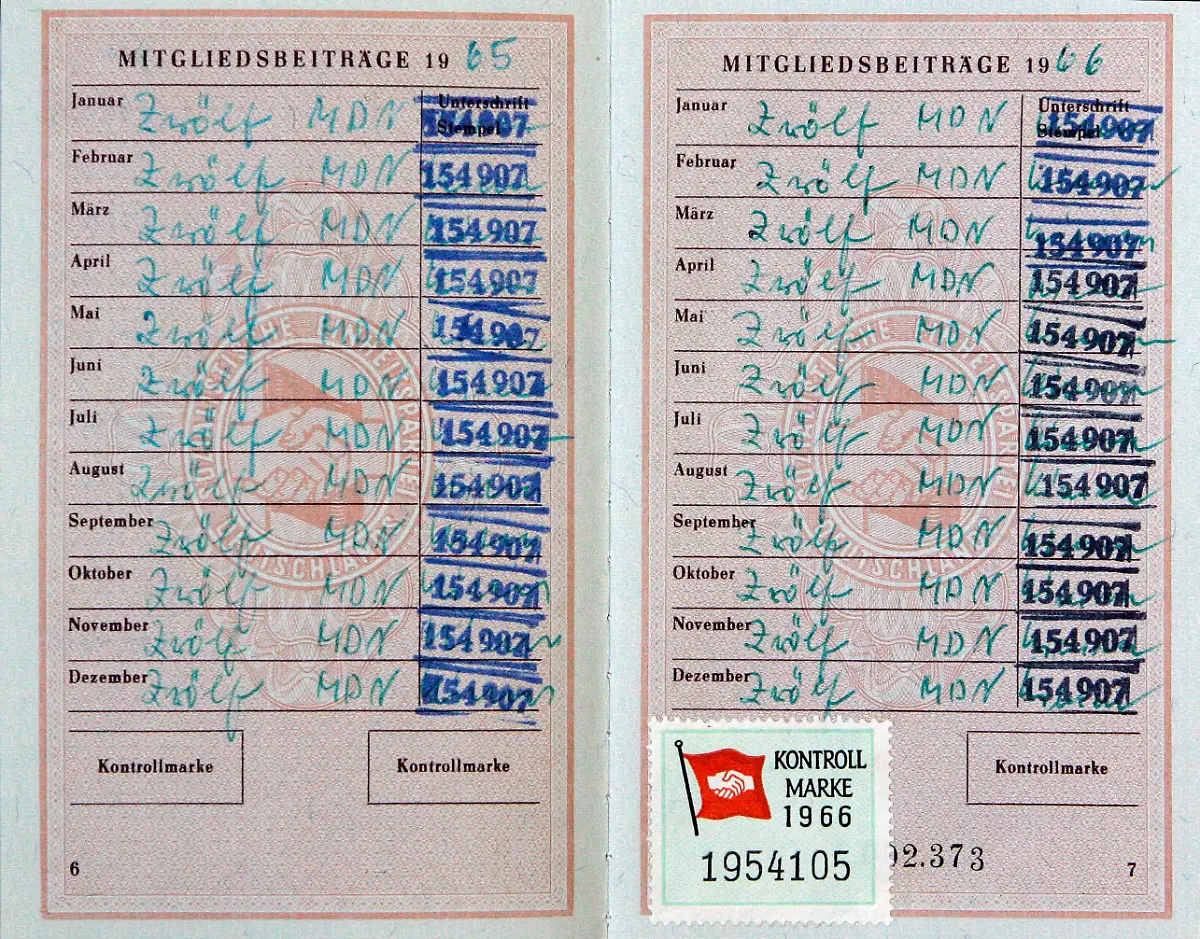 MITGLIEDSBEITRÄGE 19 65
Januar Zwölf MDN Unterschrift
Stempel 154907
Februar Zwölf MDN 154907
März Zwölf MDN 154907
April Zwölf MDN 154907
Mai Zwölf MDN 154907
Juni Zwölf MDN 154907
Juli Zwölf MDN 154907
August Zwölf MDN 154907
September Zwölf MDN 154907
Oktober Zwölf MDN 154907
November Zwölf MDN 154907
Dezember Zwölf MDN 154907
Kontrollmarke Kontrollmarke
6
MITGLIEDSBEITRÄGE 19 66
Januar Zwölf MDN Unterschrift
Stempel 154907
Februar Zwölf MDN 154907
März Zwölf MDN 154907
April Zwölf MDN 154907
Mai Zwölf MDN 154907
Juni Zwölf MDN 154907
Juli Zwölf MDN 154907
August Zwölf MDN 154907
September Zwölf MDN 154907
Oktober Zwölf MDN 154907
November Zwölf MDN 154907
Dezember Zwölf MDN 154907
KONTROLL
MARKE
1966
1954105
Kontrollmarke
92.373
7